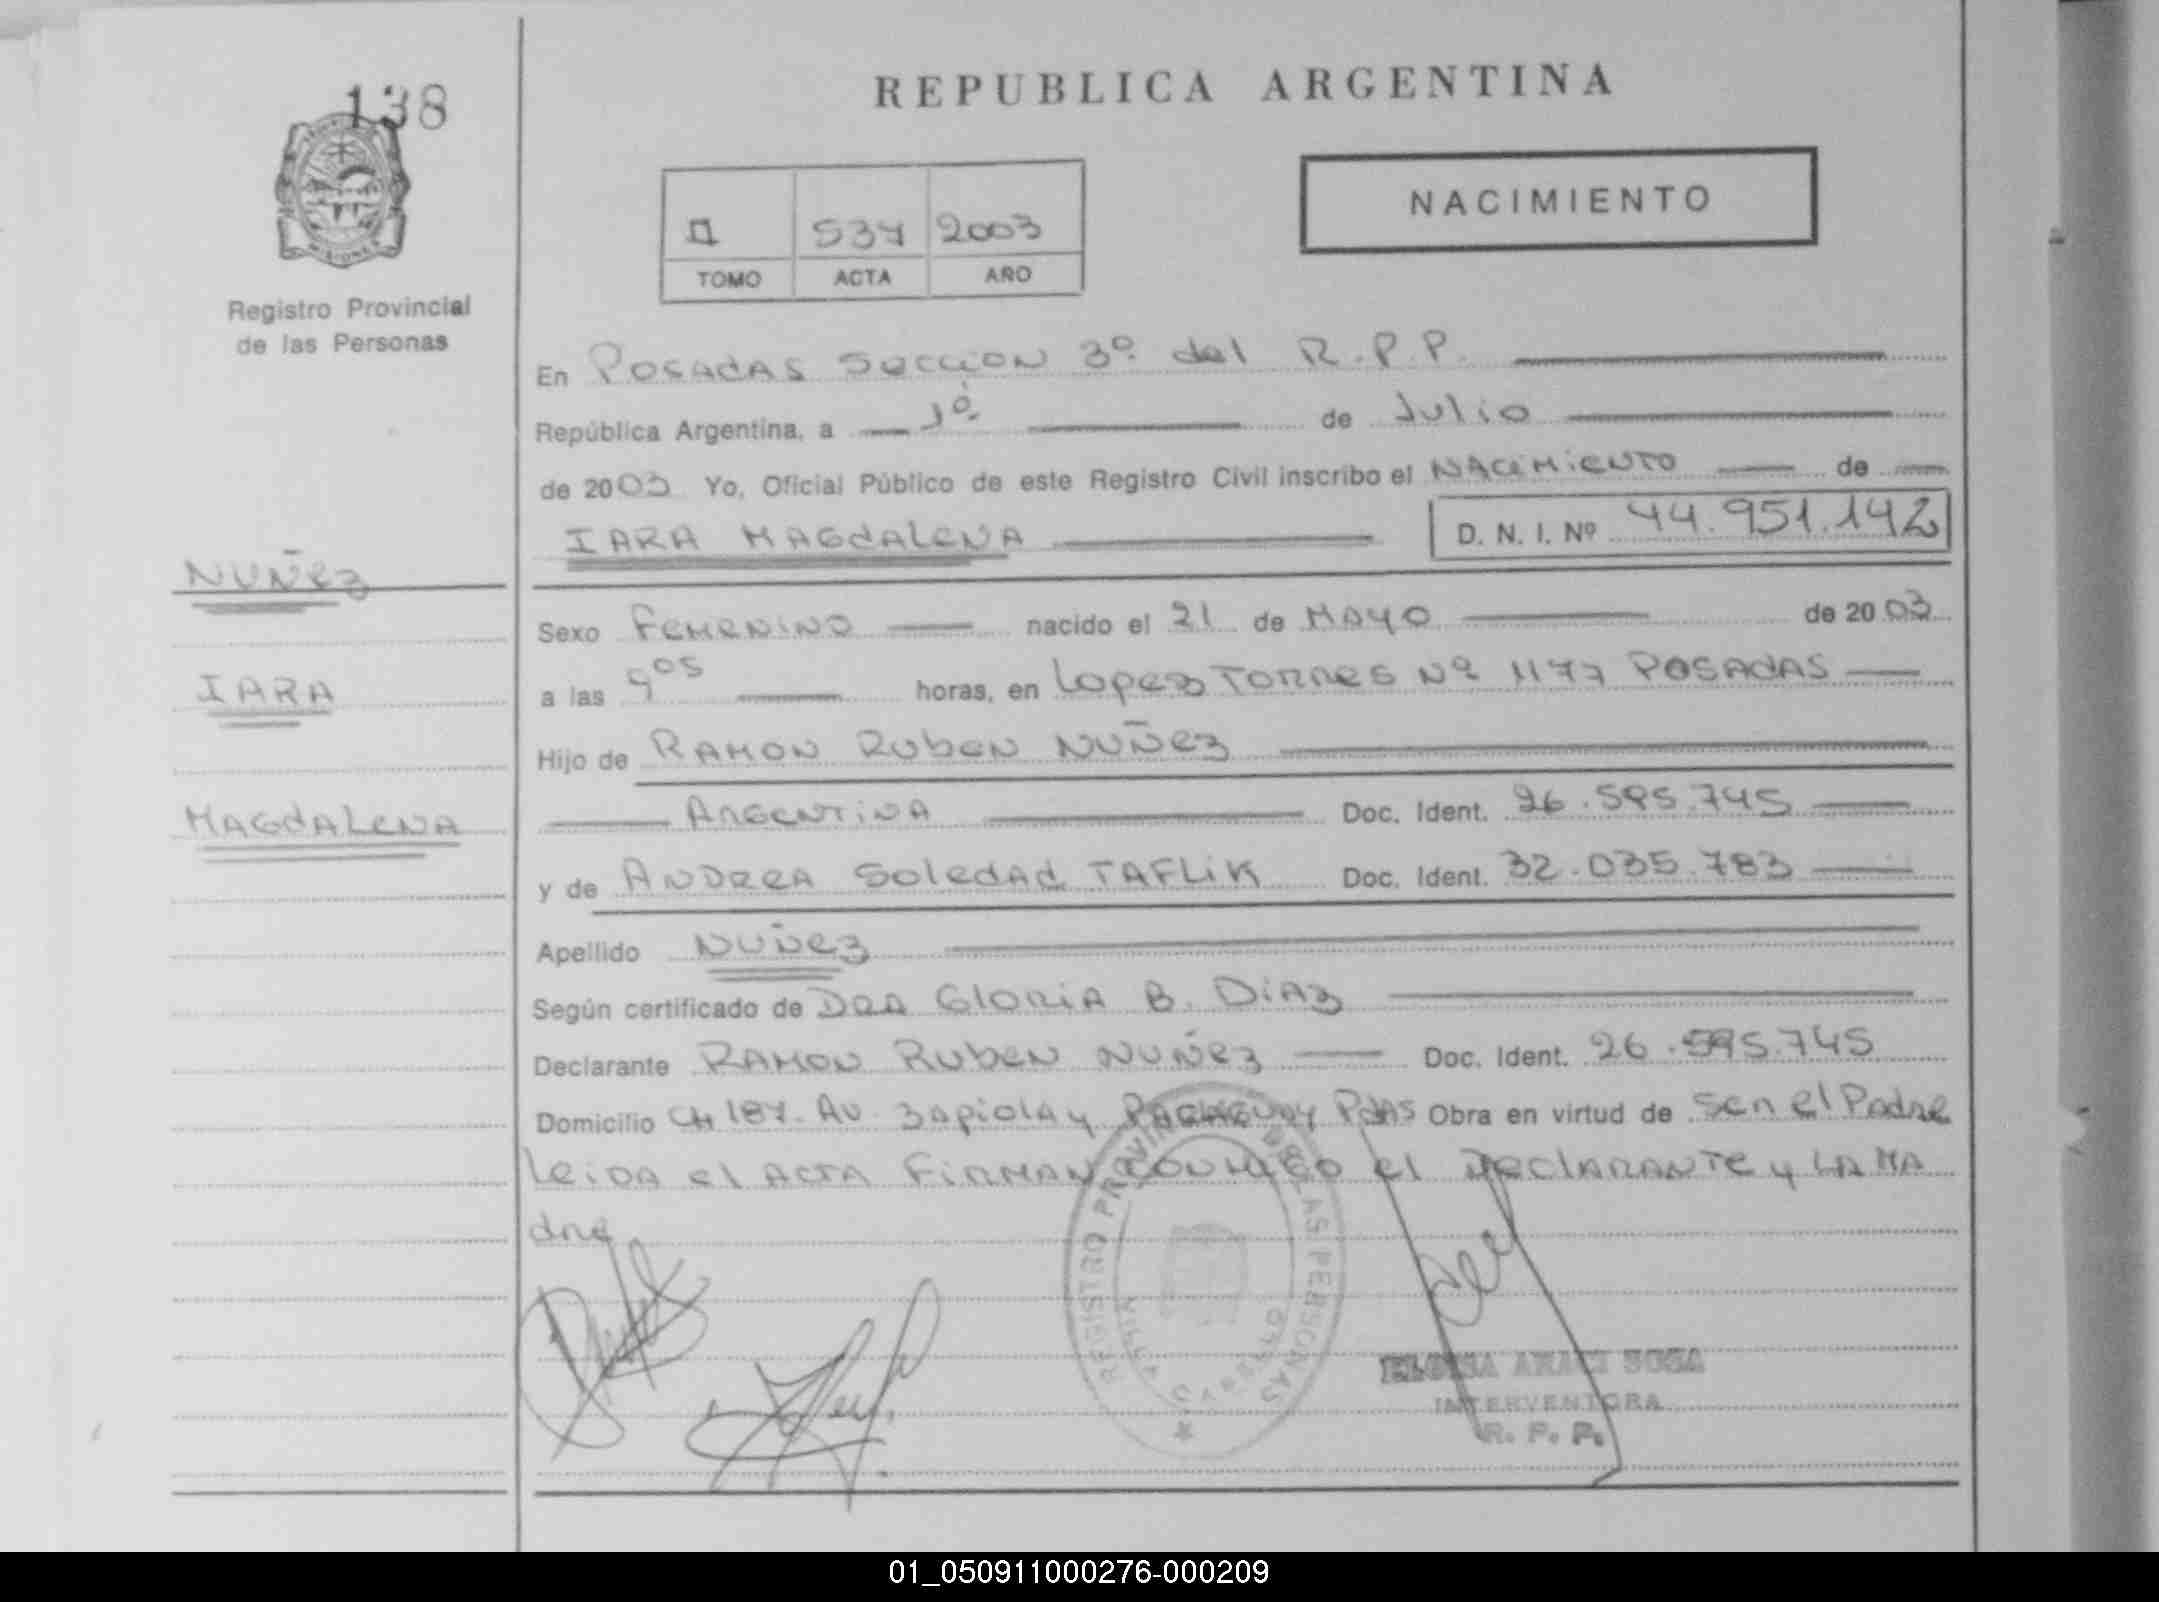 138
REPUBLICA ARGENTINA
NACIMIENTO
II 537 2003
TOMO ACTA AÑO
Registro Provincial
de las Personas
En Posadas Seccion 3º del R.P.P.
República Argentina, a 1º de Julio
de 2003 Yo, Oficial Público de este Registro Civil inscribo el NACIMIENTO de
IARA MAGDALENA D. N. I. Nº 44.951.142
NUÑEZ
IARA
MAGDALENA
Sexo Femenino nacido el 21 de MAYO de 2003
a las 9 05 horas, en Lopez Torres Nº 1177 POSADAS
Hijo de RAMON RUBEN NUÑEZ
ARGENTINA Doc. Ident. 26.595.745
y de ANDREA Soledad TAFLIK Doc. Ident. 32.035.783
Apellido NUÑEZ
Según certificado de DRA GLORIA B. DIAZ
Declarante RAMON RUBEN NUÑEZ Doc. Ident. 26.595.745
Domicilio CH 187. AV. Zapiola y PARAGUAY PdAS Obra en virtud de Ser el Padre
Leida el ACTA FIRMAN CONMIGO el DeclARANTE y LA MA
dre
REGISTRO PROVINCIAL DE LAS PERSONAS
ELOISA ARACI SOSA
INTERVENTORA
R. P. P.
01_050911000276-000209